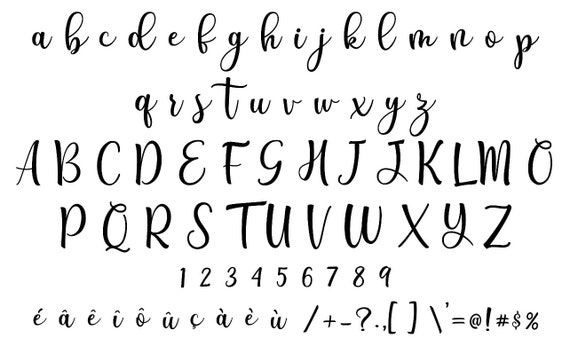 a b c d e f g h i j k l m n o p
q r s t u v w x y z
A B C D E F G H I J K L M O
P Q R S T U V W X Y Z
1 2 3 4 5 6 7 8 9
é â ê î ô û ç à è ù / + - ? . , [ ] \ ' = @ ! # $ %